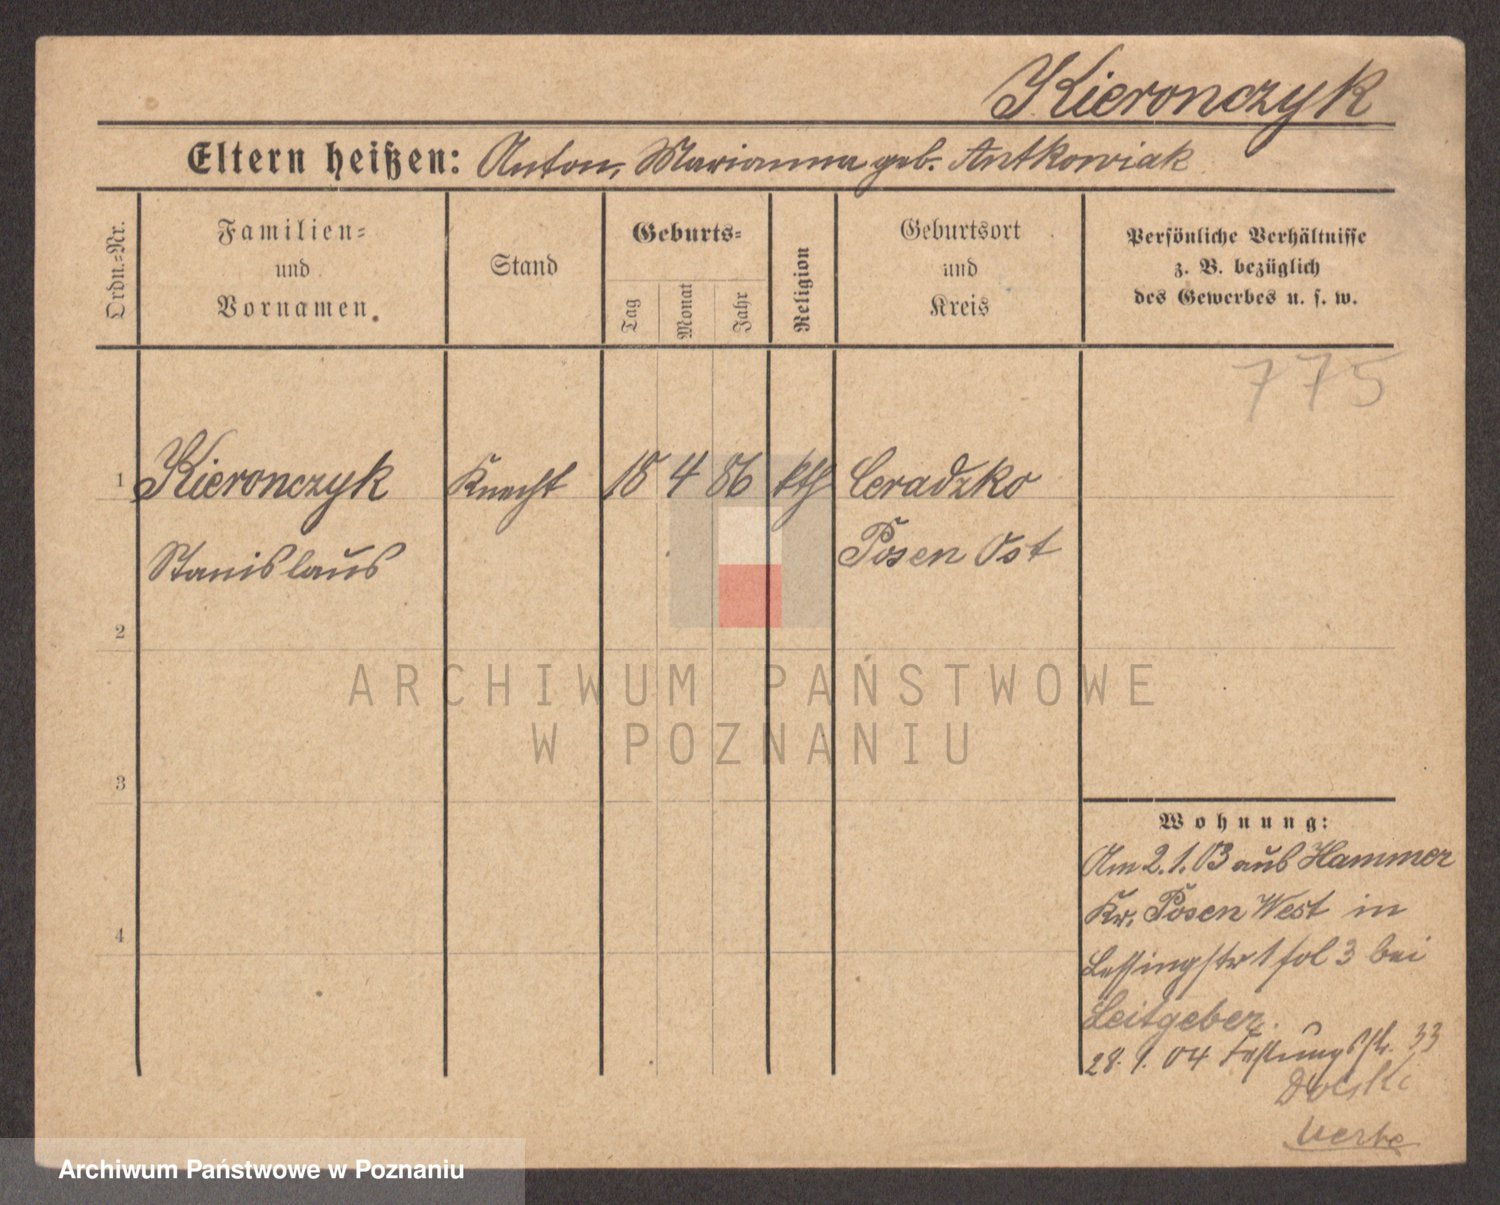 Kieronczyk
Eltern heißen: Anton, Marianna geb. Antkowiak
Ordn.-Nr.
Familien-
und
Vornamen.
Stand
Geburts-
Tag
Monat
Jahr
Religion
Geburtsort
und
Kreis
Persönliche Verhältnisse
z. B. bezüglich
des Gewerbes u. s. w.
775
1 Kieronczyk Knecht 18 4 86 kth Ceradzko
Stanislaus Posen Ost
2
ARCHIWUM PAŃSTWOWE
W POZNANIU
3
Wohnung:
Am 2.1.03 aus Hammer
Kr. Posen West in
Lessingstr 1 fol 3 bei
4
Leitgeber.
28. 1. 04 Festungsstr. 33
Archiwum Państwowe w Poznaniu